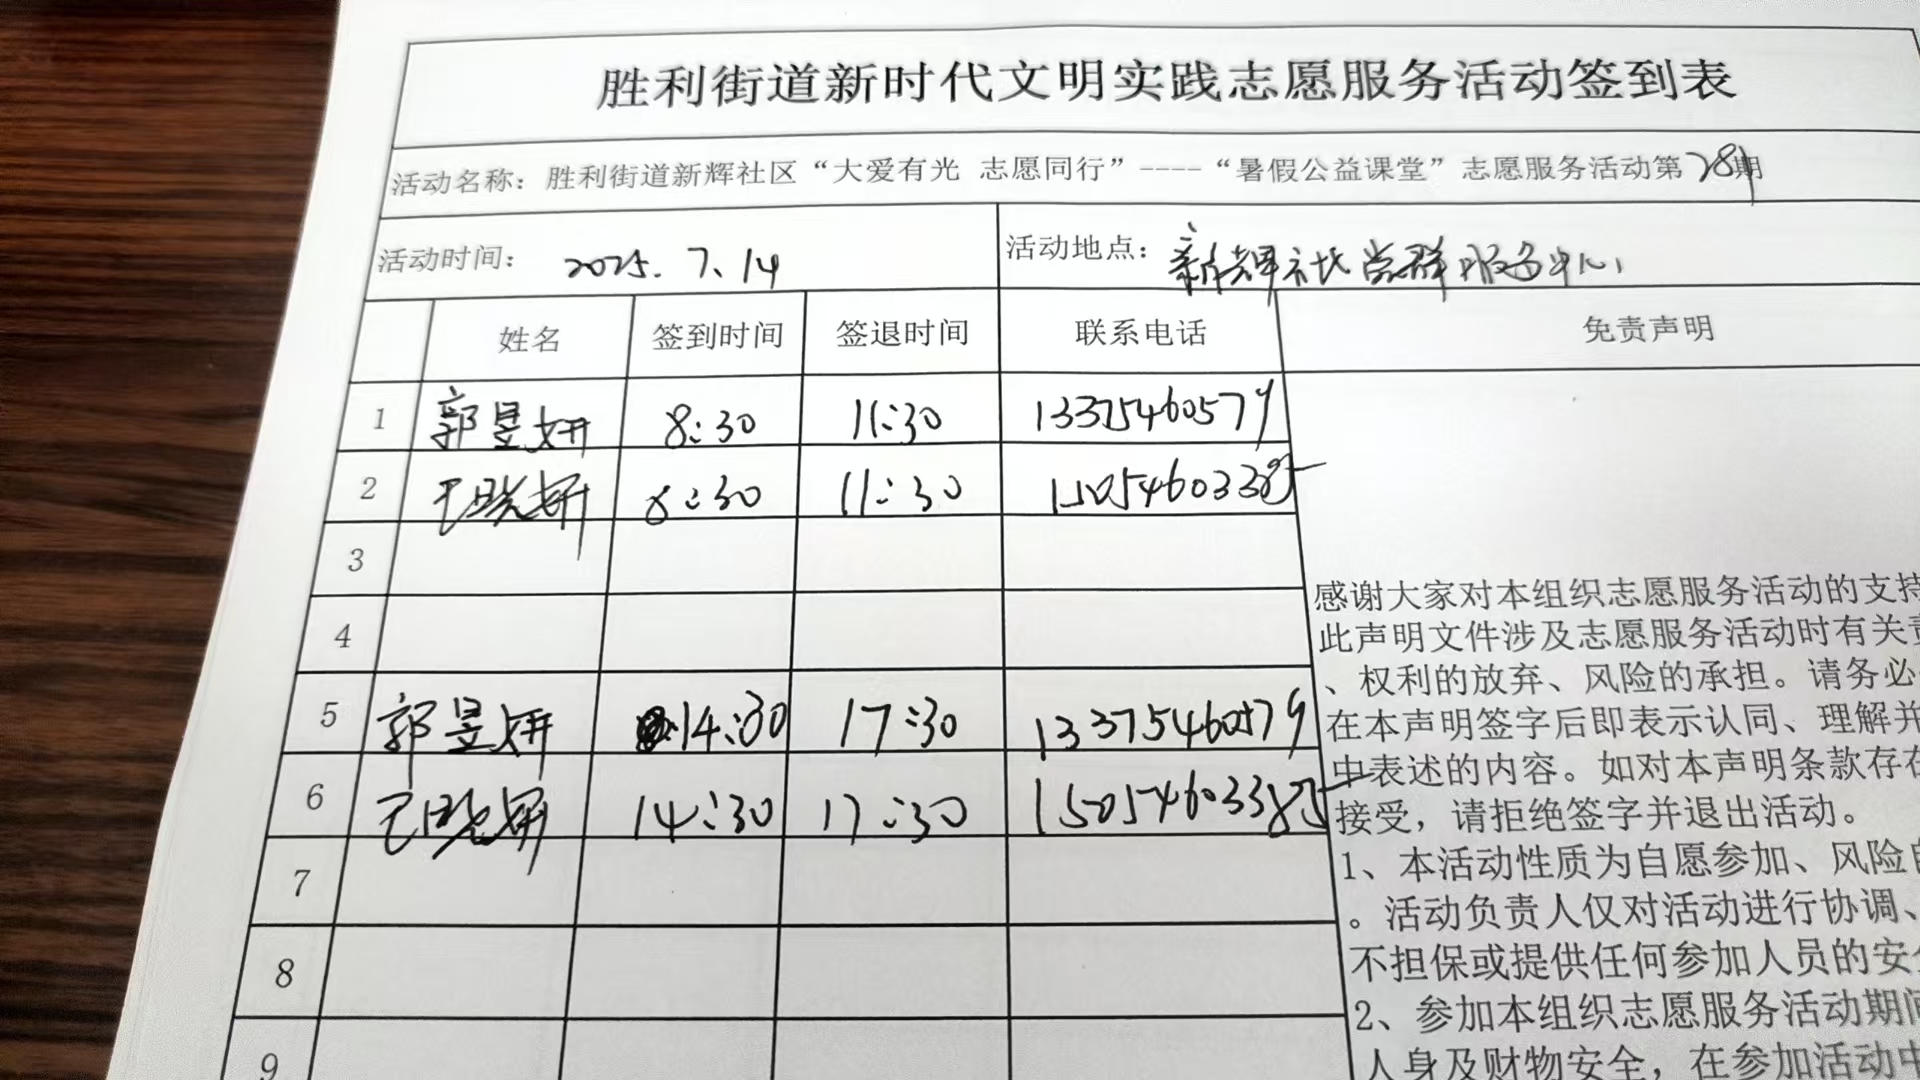 胜利街道新时代文明实践志愿服务活动签到表
活动名称：胜利街道新辉社区“大爱有光 志愿同行”----“暑假公益课堂”志愿服务活动第28期
活动时间： 2025.7.14 活动地点：新辉社区党群服务中心
姓名 签到时间 签退时间 联系电话 免责声明
1 郭昱妍 8:30 11:30 13375460579
2 王晓妍 8:30 11:30 15054603385
3
4
5 郭昱妍 14:30 17:30 13375460579
6 王晓妍 14:30 17:30 15054603385
7
8
9
感谢大家对本组织志愿服务活动的支持
此声明文件涉及志愿服务活动时有关责
、权利的放弃、风险的承担。请务必
在本声明签字后即表示认同、理解并
中表述的内容。如对本声明条款存在
接受，请拒绝签字并退出活动。
1、本活动性质为自愿参加、风险自
。活动负责人仅对活动进行协调、
不担保或提供任何参加人员的安全
2、参加本组织志愿服务活动期间
人身及财物安全，在参加活动中